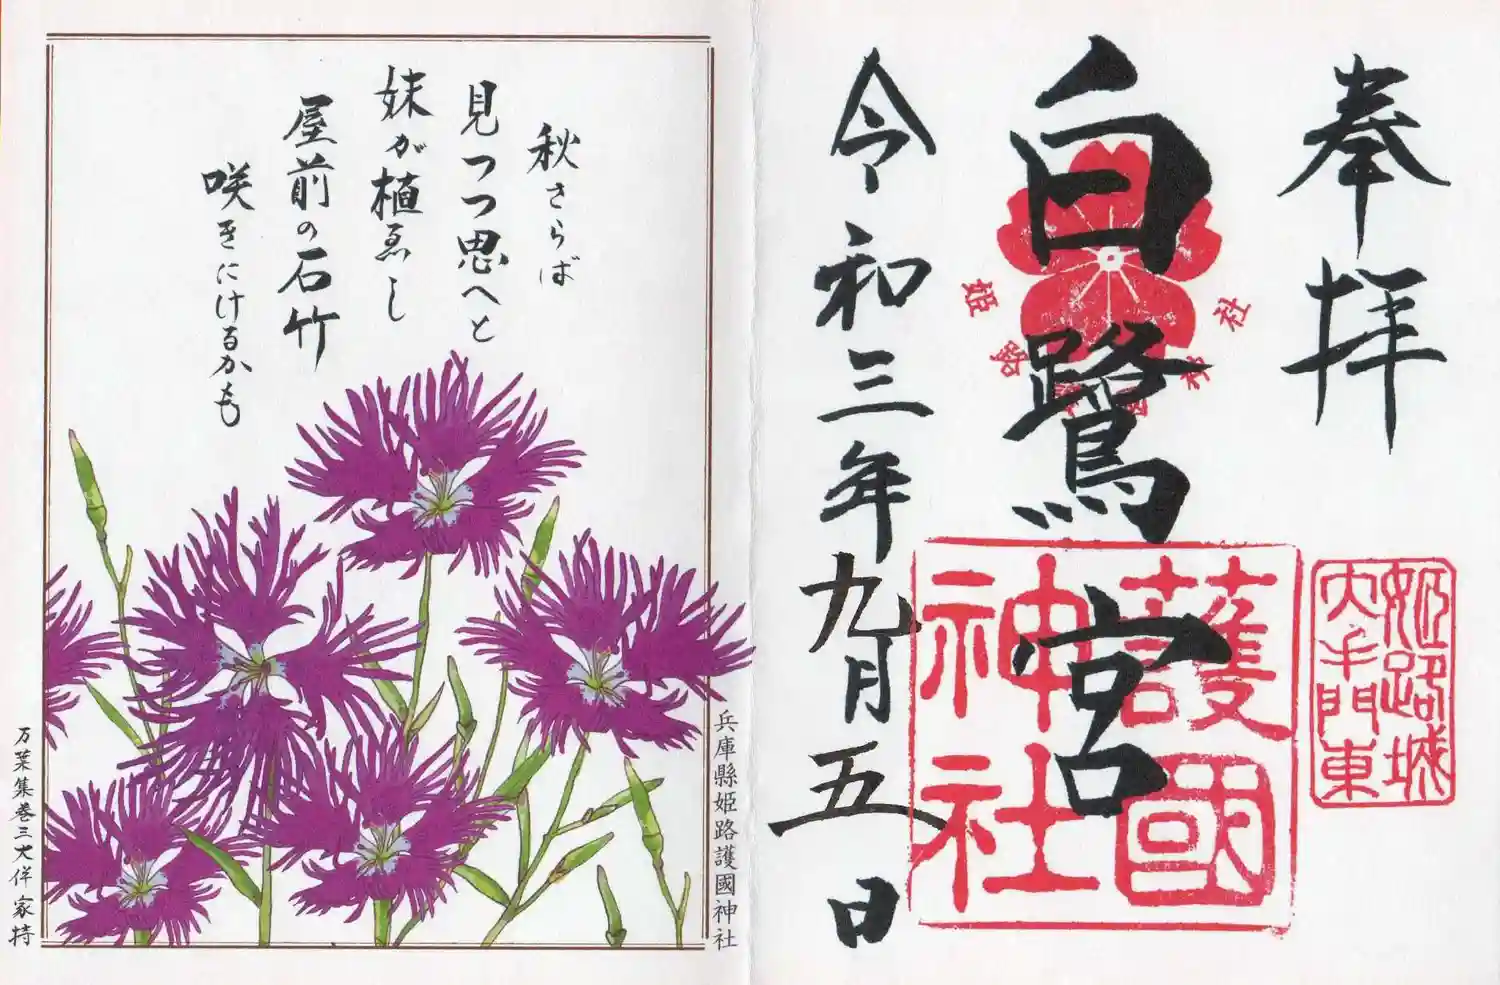 奉拝
白鷺宮
令和三年九月五日
姫路護國神社
護國
神社
姫路城
大手門東
秋さらば
見つつ思へと
妹が植ゑし
屋前の石竹
咲きにけるかも
兵庫縣姫路護國神社
万葉集巻三大伴家持